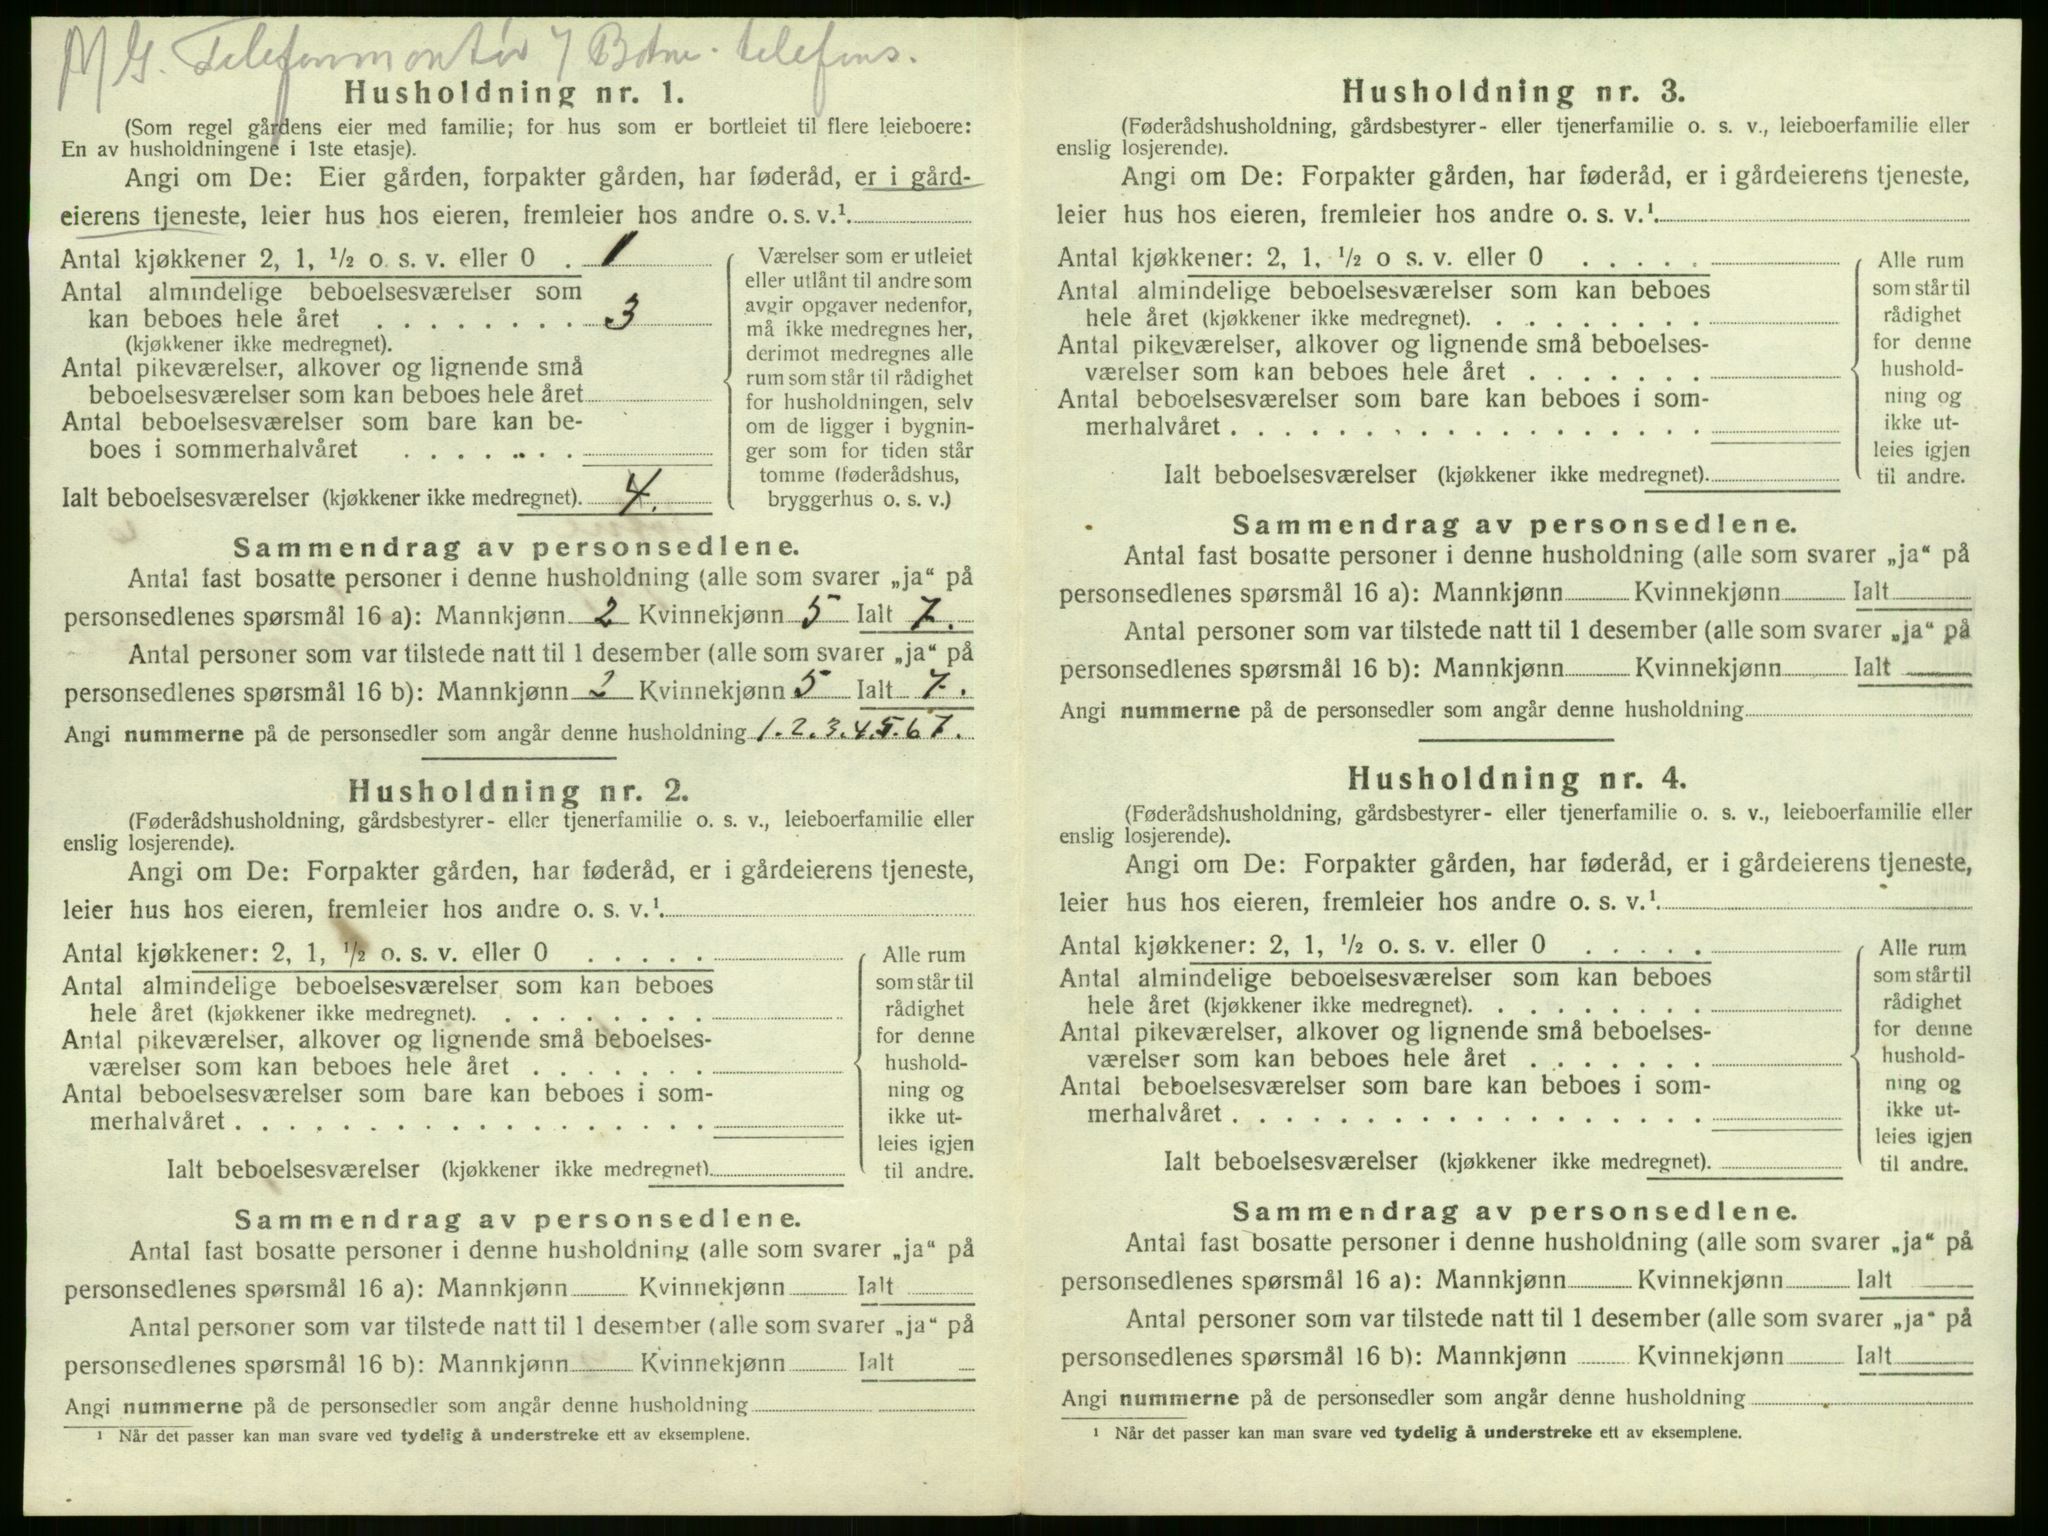 M G. Telefonmontör / Botne telefons.
Husholdning nr. 1.
(Som regel gårdens eier med familie; for hus som er bortleiet til flere leieboere:
En av husholdningene i 1ste etasje).
Angi om De: Eier gården, forpakter gården, har føderåd, er i gård-
eierens tjeneste, leier hus hos eieren, fremleier hos andre o. s. v.¹
Antal kjøkkener 2, 1, ½ o. s. v. eller 0 . 1
Antal almindelige beboelsesværelser som
kan beboes hele året . . . . . . . . 3
(kjøkkener ikke medregnet).
Antal pikeværelser, alkover og lignende små
beboelsesværelser som kan beboes hele året
Antal beboelsesværelser som bare kan be-
boes i sommerhalvåret . . . . . . .
Ialt beboelsesværelser (kjøkkener ikke medregnet). 4.
Værelser som er utleiet
eller utlånt til andre som
avgir opgaver nedenfor,
må ikke medregnes her,
derimot medregnes alle
rum som står til rådighet
for husholdningen, selv
om de ligger i bygnin-
ger som for tiden står
tomme (føderådshus,
bryggerhus o. s. v.)
Sammendrag av personsedlene.
Antal fast bosatte personer i denne husholdning (alle som svarer „ja“ på
personsedlenes spørsmål 16 a): Mannkjønn 2 Kvinnekjønn 5 Ialt 7.
Antal personer som var tilstede natt til 1 desember (alle som svarer „ja“ på
personsedlenes spørsmål 16 b): Mannkjønn 2 Kvinnekjønn 5 Ialt 7.
Angi nummerne på de personsedler som angår denne husholdning 1. 2. 3. 4. 5. 6 7.
Husholdning nr. 2.
(Føderådshusholdning, gårdsbestyrer- eller tjenerfamilie o. s. v., leieboerfamilie eller
enslig losjerende).
Angi om De: Forpakter gården, har føderåd, er i gårdeierens tjeneste,
leier hus hos eieren, fremleier hos andre o. s. v.¹
Antal kjøkkener: 2, 1, ½ o. s. v. eller 0 . . . . .
Antal almindelige beboelsesværelser som kan beboes
hele året (kjøkkener ikke medregnet). . . . . . . . .
Antal pikeværelser, alkover og lignende små beboelses-
værelser som kan beboes hele året . . . . . . .
Antal beboelsesværelser som bare kan beboes i som-
merhalvåret . . . . . . . . . . . . . . . . . .
Ialt beboelsesværelser (kjøkkener ikke medregnet).
Alle rum
som står til
rådighet
for denne
hushold-
ning og
ikke ut-
leies igjen
til andre.
Sammendrag av personsedlene.
Antal fast bosatte personer i denne husholdning (alle som svarer „ja“ på
personsedlenes spørsmål 16 a): Mannkjønn Kvinnekjønn Ialt
Antal personer som var tilstede natt til 1 desember (alle som svarer „ja“ på
personsedlenes spørsmål 16 b): Mannkjønn Kvinnekjønn Ialt
Angi nummerne på de personsedler som angår denne husholdning
¹ Når det passer kan man svare ved tydelig å understreke ett av eksemplene.
Husholdning nr. 3.
(Føderådshusholdning, gårdsbestyrer- eller tjenerfamilie o. s. v., leieboerfamilie eller
enslig losjerende).
Angi om De: Forpakter gården, har føderåd, er i gårdeierens tjeneste,
leier hus hos eieren, fremleier hos andre o. s. v.¹
Antal kjøkkener: 2, 1, ½ o s. v. eller 0 . . . . .
Antal almindelige beboelsesværelser som kan beboes
hele året (kjøkkener ikke medregnet). . . . . . . . .
Antal pikeværelser, alkover og lignende små beboelses-
værelser som kan beboes hele året . . . . . . .
Antal beboelsesværelser som bare kan beboes i som-
merhalvåret . . . . . . . . . . . . . . . . . .
Ialt beboelsesværelser (kjøkkener ikke medregnet).
Alle rum
som står til
rådighet
for denne
hushold-
ning og
ikke ut-
leies igjen
til andre.
Sammendrag av personsedlene.
Antal fast bosatte personer i denne husholdning (alle som svarer „ja“ på
personsedlenes spørsmål 16 a): Mannkjønn Kvinnekjønn Ialt
Antal personer som var tilstede natt til 1 desember (alle som svarer „ja“ på
personsedlenes spørsmål 16 b): Mannkjønn Kvinnekjønn Ialt
Angi nummerne på de personsedler som angår denne husholdning
Husholdning nr. 4.
(Føderådshusholdning, gårdsbestyrer- eller tjenerfamilie o. s. v., leieboerfamilie eller
enslig losjerende).
Angi om De: Forpakter gården, har føderåd, er i gårdeierens tjeneste,
leier hus hos eieren, fremleier hos andre o. s. v.¹
Antal kjøkkener: 2, 1, ½ o. s. v. eller 0 . . . . .
Antal almindelige beboelsesværelser som kan beboes
hele året (kjøkkener ikke medregnet). . . . . . . . .
Antal pikeværelser, alkover og lignende små beboelses-
værelser som kan beboes hele året . . . . . . .
Antal beboelsesværelser som bare kan beboes i som-
merhalvåret . . . . . . . . . . . . . . . . . .
Ialt beboelsesværelser (kjøkkener ikke medregnet).
Alle rum
som står til
rådighet
for denne
hushold-
ning og
ikke ut-
leies igjen
til andre.
Sammendrag av personsedlene.
Antal fast bosatte personer i denne husholdning (alle som svarer „ja“ på
personsedlenes spørsmål 16 a): Mannkjønn Kvinnekjønn Ialt
Antal personer som var tilstede natt til 1 desember (alle som svarer „ja“ på
personsedlenes spørsmål 16 b): Mannkjønn Kvinnekjønn Ialt
Angi nummerne på de personsedler som angår denne husholdning
¹ Når det passer kan man svare ved tydelig å understreke ett av eksemplene.